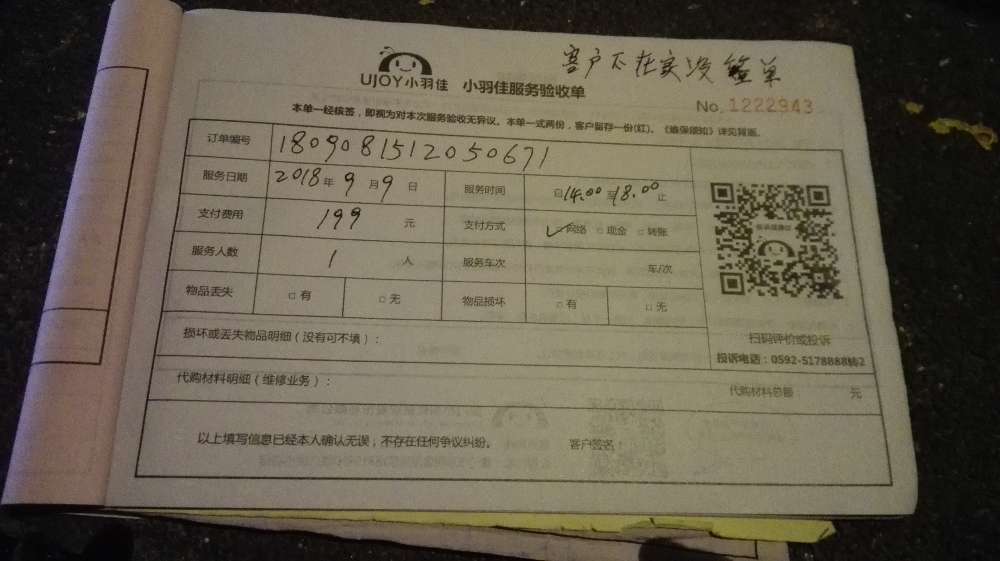 客户不在家没签单
UJOY小羽佳 小羽佳服务验收单
No. 1222943
本单一经核签,即视为对本次服务验收无异议。本单一式两份,客户留存一份(红)。《维保须知》详见背面。
订单编号 1809081512050671
服务日期 2018年9月9日 服务时间 自14:00至18:00止
支付费用 199 元 支付方式 ☑网络 □现金 □转账
服务人数 1 人 服务车次 车/次
物品丢失 □有 □无 物品损坏 □有 □无
损坏或丢失物品明细(没有可不填):
扫码评价或投诉
投诉电话:0592-5178888转2
代购材料明细(维修业务): 代购材料总额 元
以上填写信息已经本人确认无误,不存在任何争议纠纷。 客户签名: